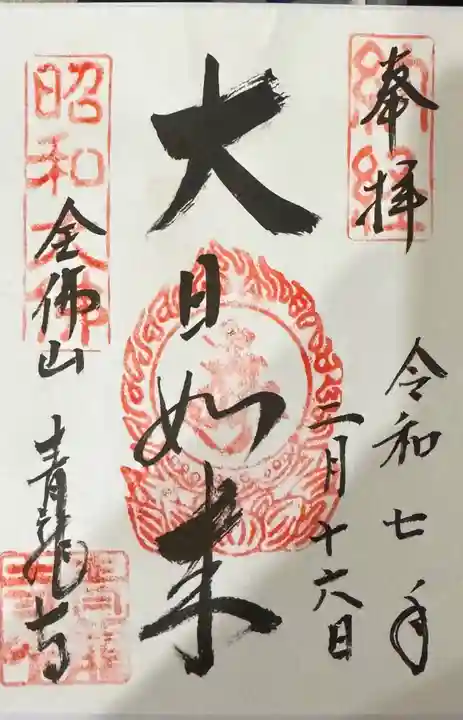 奉拝
納経
令和七年
二月十六日
大日如来
昭和大佛
全佛山
青龍寺